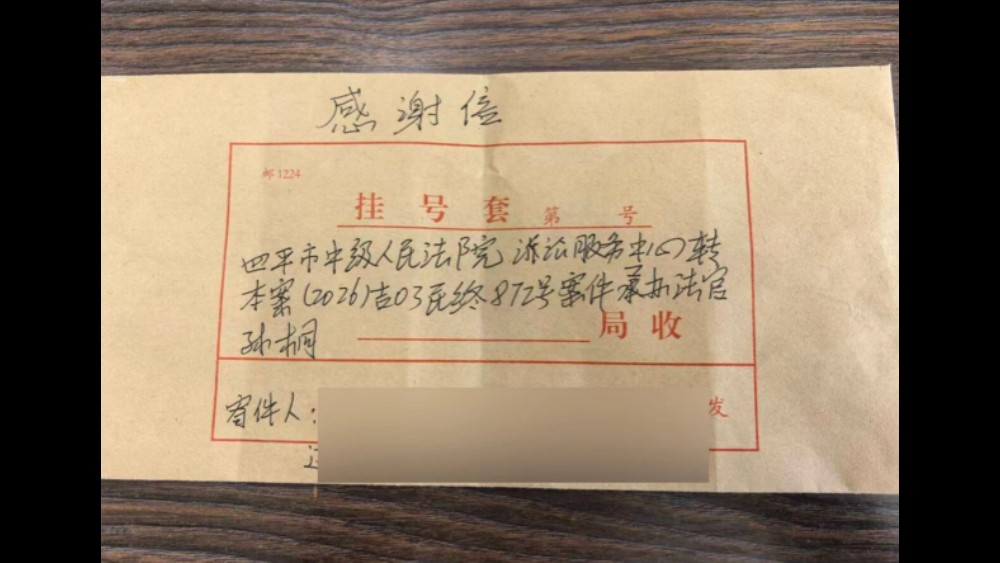 感谢信
邮1224
挂号套 第 号
四平市中级人民法院 诉讼服务中心转
本案(2026)吉03民终872号案件承办法官
孙桐
局收
寄件人:
发